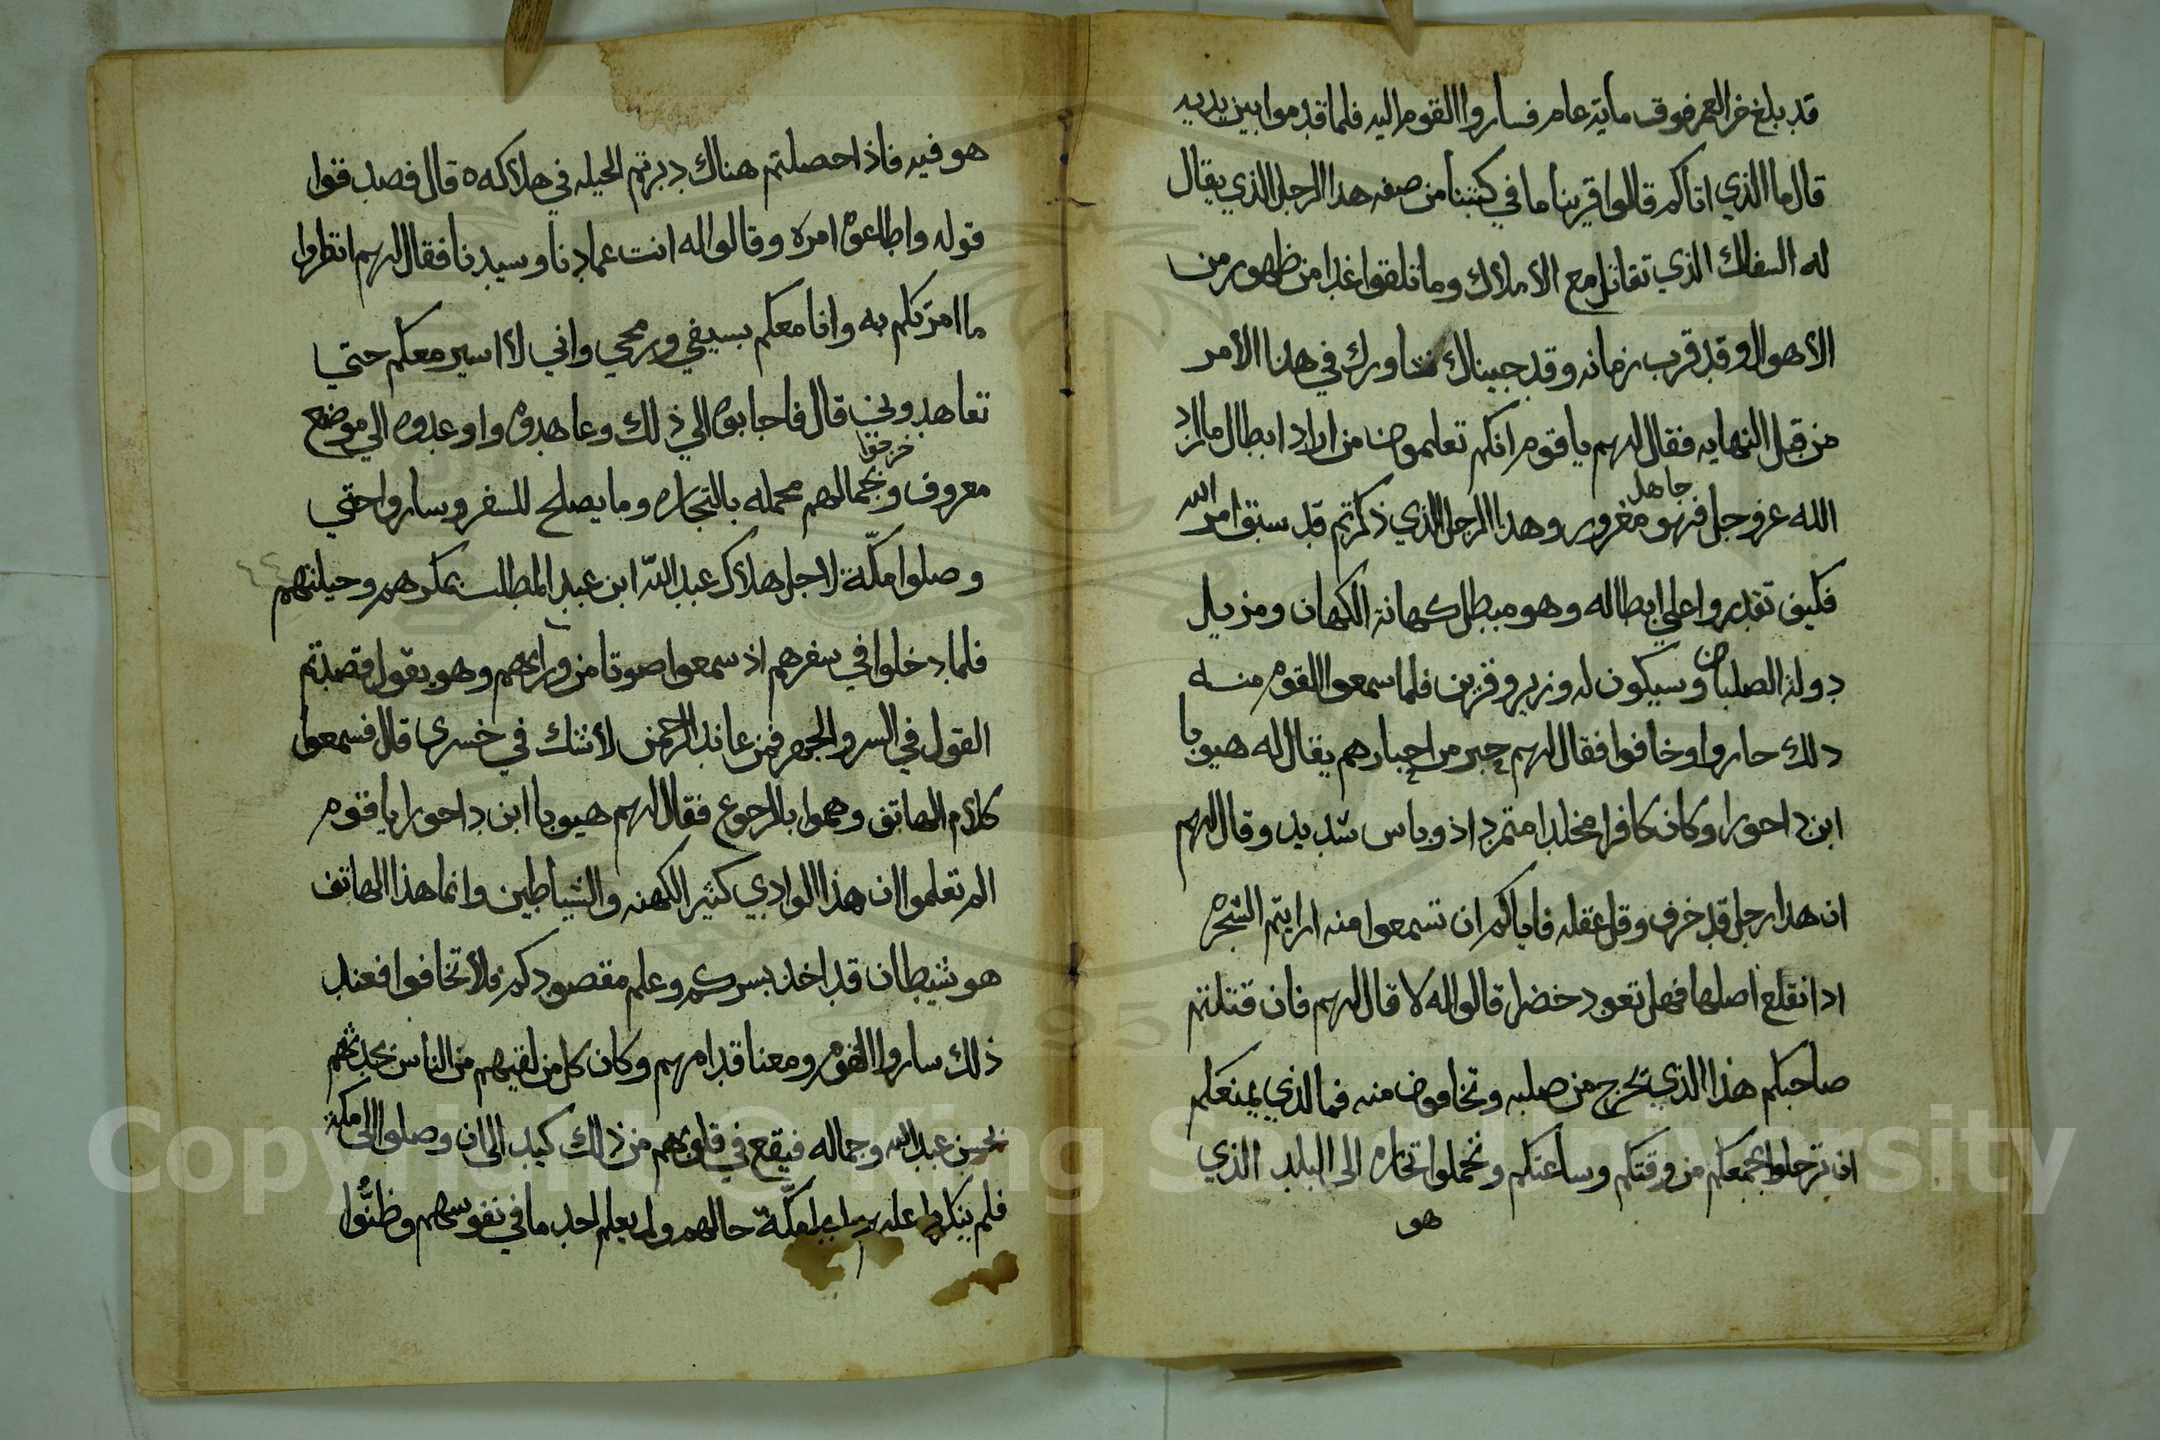 قد بلغ خر العمر فوق ماية عام فساروا القوم اليه فلما قدموا بين يديه
قال ما الذي اتاكم قالوا قرينا ما في كتبنا من صفه هدا الرجل الذي يقال
له السفاك الذي تقاتل مع الأملاك وما نلقوا غدا من ظهوره من
الأهوال وقد قرب زمانه وقد جيناك نشاورك في هدا الأمر
من قبل النهايه فقال لهم يا قوم انكم تعلمون من اراد ابطال ما اراد
الله عز وجل فهو جاهل مغرور وهدا الرجل الذي ذكرتم قد سبق امر الله
فكيف تقدروا علي ابطاله وهو مبطل كهانة الكهان ومزيل
دولة الصلبان وسيكون له وزير وقرين فلما سمعوا القوم منه
دلك حاروا وخافوا فقال لهم حبر من احبارهم يقال له هيوبا
ابن داحورا وكان كافرا مخلدا متمردا ذو باس شديد وقال لهم
ان هدا رجل قد خرف وقل عقله فاياكم ان تسمعوا منه ارايتم الشجره
ادا انقلع اصلها فهل تعود خضرا قالوا له لا قال لهم فان قتلتم
صاحبكم هذا الذي يخرج من صلبه وتخافون منه فما الذي يمنعكم
ان ترحلوا بجمعكم من وقتكم وساعتكم وتحملوا تجاره الى البلد الذي
هو
هو فيه فاذا حصلتم هناك دبرتم الحيله في هلاكه ٥ قال فصدقوا
قوله واطاعوه امره وقالوا له انت عمادنا وسيدنا فقال لهم انظروا
ما امرتكم به وانا معكم بسيفي ورمحي واني لأ اسير معكم حتي
تعاهدوني قال فاجابوه الي ذلك وعاهدوه واوعدوه الي موضع
معروف وخرجوا بجمالهم محمله بالتجاره وما يصلح للسفر وساروا حتي
وصلوا مكّة لاجل هلاك عبد اللّه ابن عبد المطلب بمكرهم وحيلتهم
فلما دخلوا في سفرهم اذ سمعوا صوتا من ورايهم وهو يقول قصدتم
القول في السر والجهر فمن عاند الرحمن لأشك في خسرى قال فسمعوا
كلام الهاتف وهموا بالرجوع فقال لهم هيوبا ابن داحورا يا قوم
الم تعلموا ان هذا الوادي كثير الكهنه والشياطين وانما هذا الهاتف
هو شيطان قد اخذ بسركم وعلم مقصودكم فلأ تخافوا فعند
ذلك ساروا القوم ومعنا قدامهم وكان كل من لقيهم من الناس يحدثهم
بحسن عبد الله وجماله فيقع في قلوبهم من ذلك كيد الى ان وصلوا الى مكة
فلم ينكروا عليهم اهل مكّة حالهم ولم يعلم احد ما في نفوسهم وظنُّوا
Copyright © King Saud University
1957